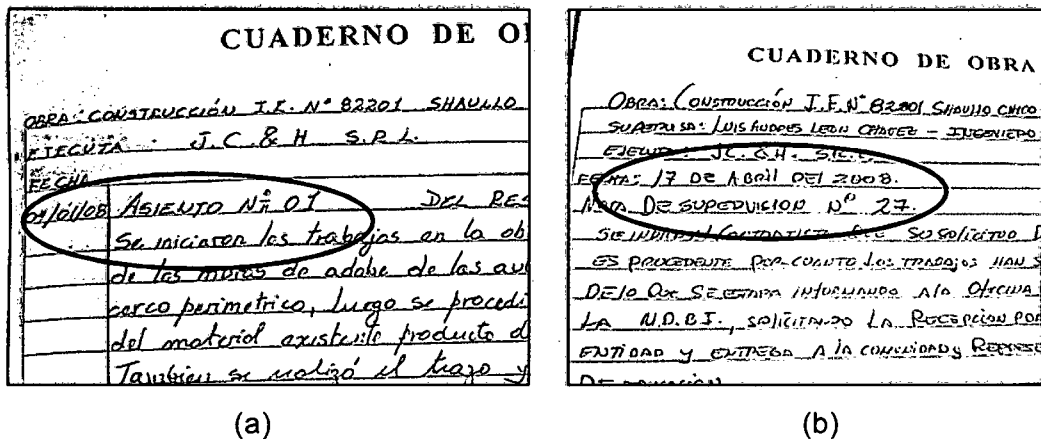 CUADERNO DE O
OBRA: CONSTRUCCIÓN I.E. N° 82201 SHAULLO
EJECUTA : J.C. & H S.R.L.
FECHA
ASIENTO N° 01 DEL RES
Se iniciaron los trabajos en la ob
de los muros de adobe de las au
cerco perimetrico, luego se procedi
del material existente producto d
Tambien se realizó el trazo y
(a)
CUADERNO DE OBRA
OBRA: CONSTRUCCIÓN I.E. N° 82201 SHAULLO CHICO
SUPERVISA: LUIS ANDRES LEON CHAVEZ - INGENIERO
EJECUTA: JC. & H.
FECHA: 17 DE ABRIL DEL 2008.
NOTA DE SUPERVICION N° 27.
SE INDICA AL CONTRATISTA QUE SU SOLICITUD
ES PROCEDENTE POR CUANTO LOS TRABAJOS HAN
INFORMANDO A LA OFICINA
LA SOLICITANDO LA RECEPCION POR
ENTIDAD Y ENTREGA A LA COMUNIDAD Y
(b)